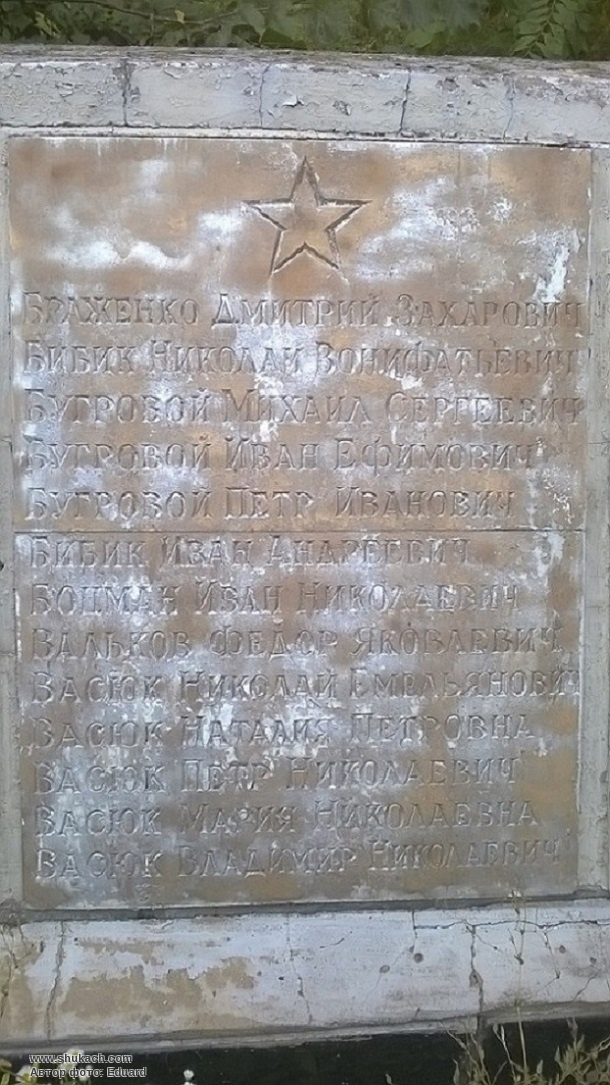 Браженко Дмитрий Захарович
Бибик Николай Вонифатьевич
Бугровой Михаил Сергеевич
Бугровой Иван Ефимович
Бугровой Петр Иванович
Бибик Иван Андреевич
Бопман Иван Николаевич
Вальков Федор Яковлевич
Васюк Николай Емельянович
Васюк Наталия Петровна
Васюк Петр Николаевич
Васюк Мария Николаевна
Васюк Владимир Николаевич
www.shukach.com
Автор фото: Eduard